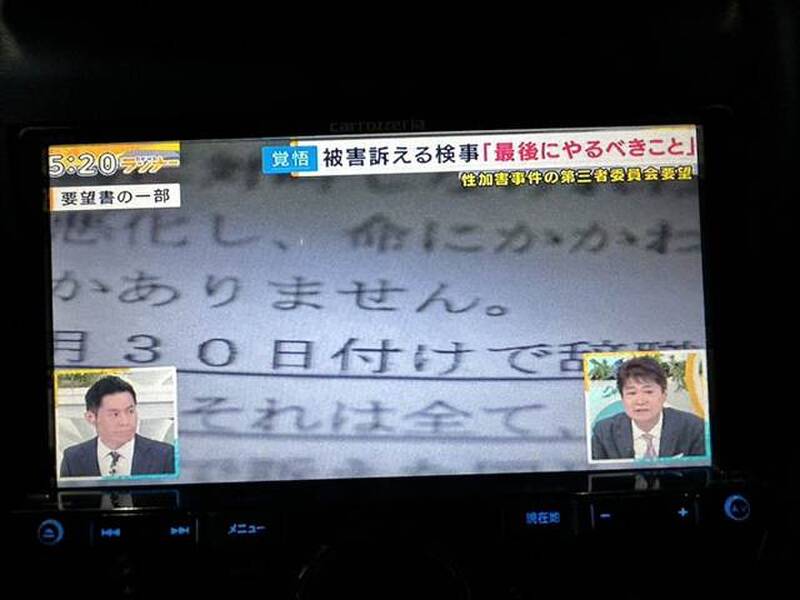 carrozzeria
5:20 ランナー
覚悟 被害訴える検事「最後にやるべきこと」
性加害事件の第三者委員会要望
要望書の一部
悪化し、命にかかわ
かありません。
月30日付けで辞職
それは全て、
メニュー
現在地
− +